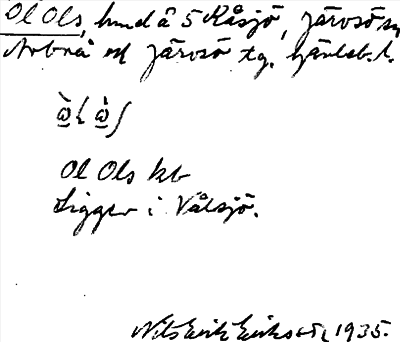 Ol Ols, hmd å 5 Kåsjö, Järvsö sn
Arbrå och Järvsö tg. Gävleb. l.
Ol Ols kb
Ligger i Vålsjö.
Nils Erik Eriksson, 1935.